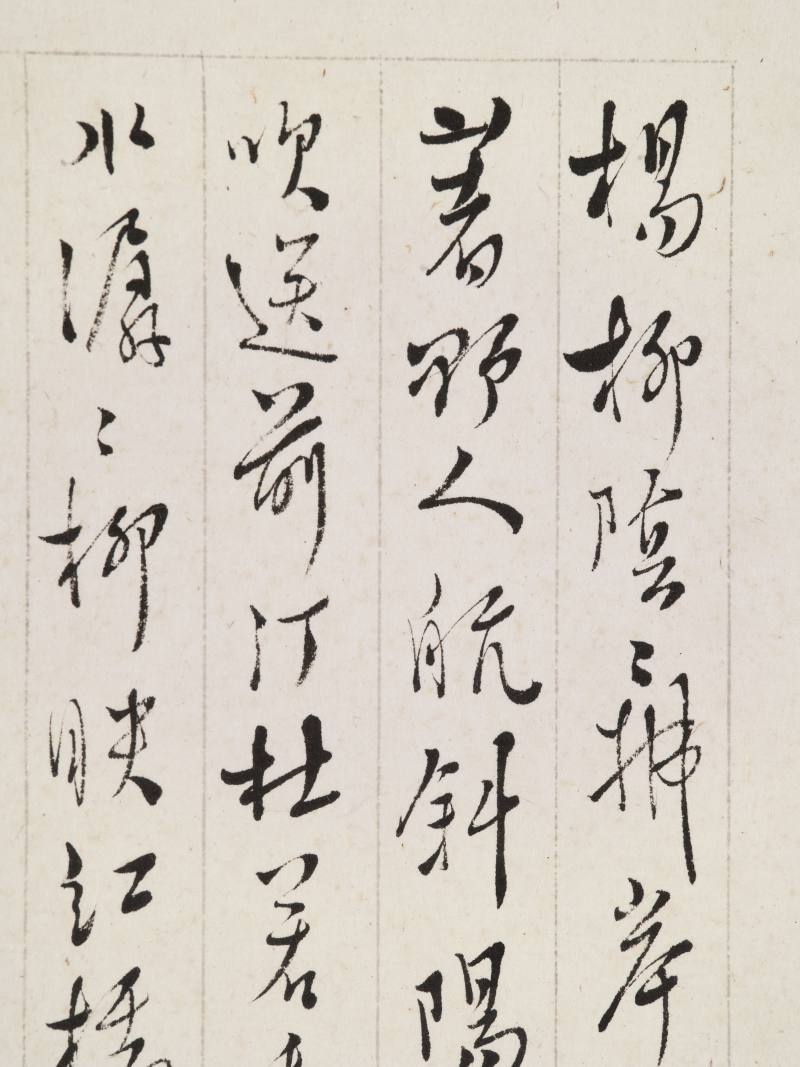 楊柳陰〻拂岸
著野人航斜陽
吹送前汀杜若
水潺〻柳映紅橋